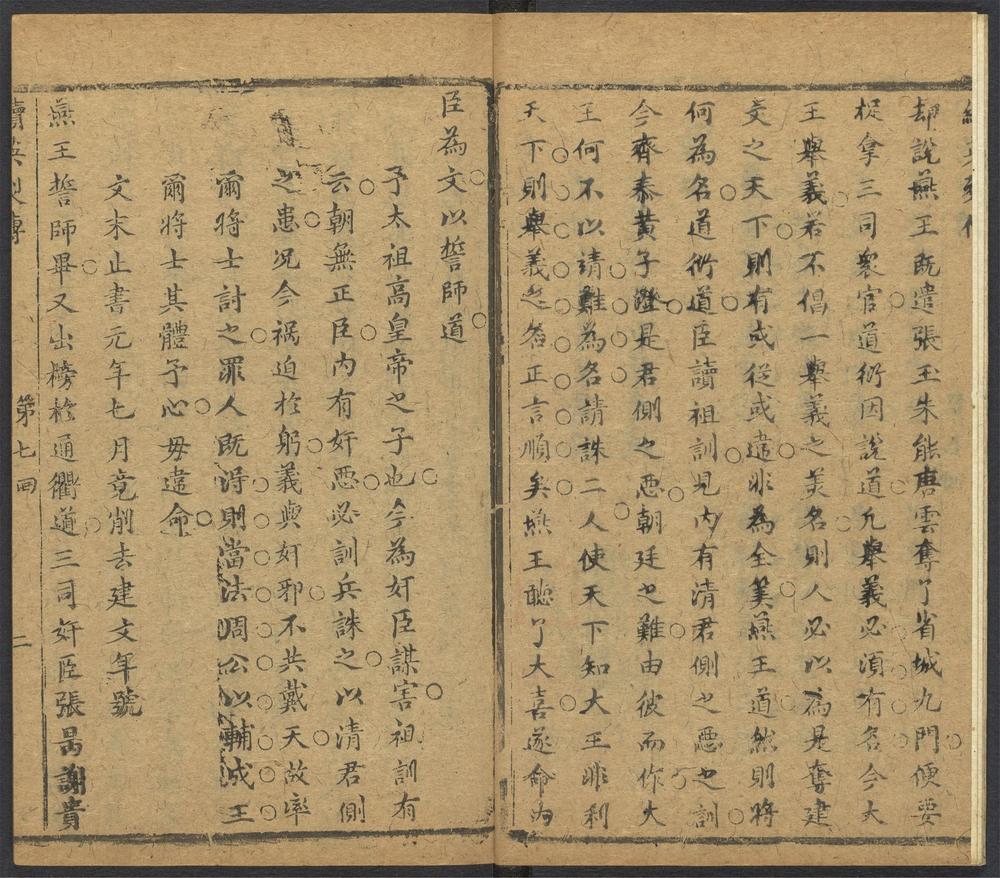 却說燕王既遣張玉朱能唐雲奪了省城九門便要
捉拿三司衆官道衍因說道凢舉義必湏有名今大
王舉義若不倡一舉義之美名則人必以為是奪建
文之天下則有或從或違非為全筭燕王道然則將
何為名道衍道臣讀祖訓見内有清君側之惡之訓
今齊泰黃子澄是君側之惡朝廷之難由彼而作大
王何不以靖難為名請誅二人使天下知大王非利
天下則舉義之名正言順矣燕王聽了大喜遂命内
臣為文以誓師道
予太祖高皇帝之子也今為奸臣謀害祖訓有
云朝無正臣内有奸惡必訓兵誅之以清君側
之患况今祸迫於躬義與奸邪不共戴天故率
爾將士討之罪人既得則當法周公以輔成王
爾將士其體予心毋違命
文末止書元年七月竟削去建文年號
燕王誓師畢又出榜於通衢道三司奸臣張昺謝貴
續英烈傳 第七回 二